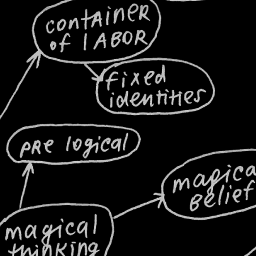 container
of LABOR
fixed
identities
pre logical
magica
belief
magical
thinking